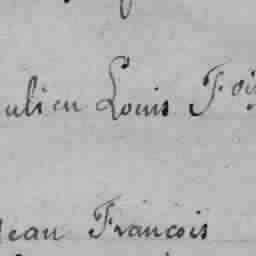 ulien Louis Foi
Jean François